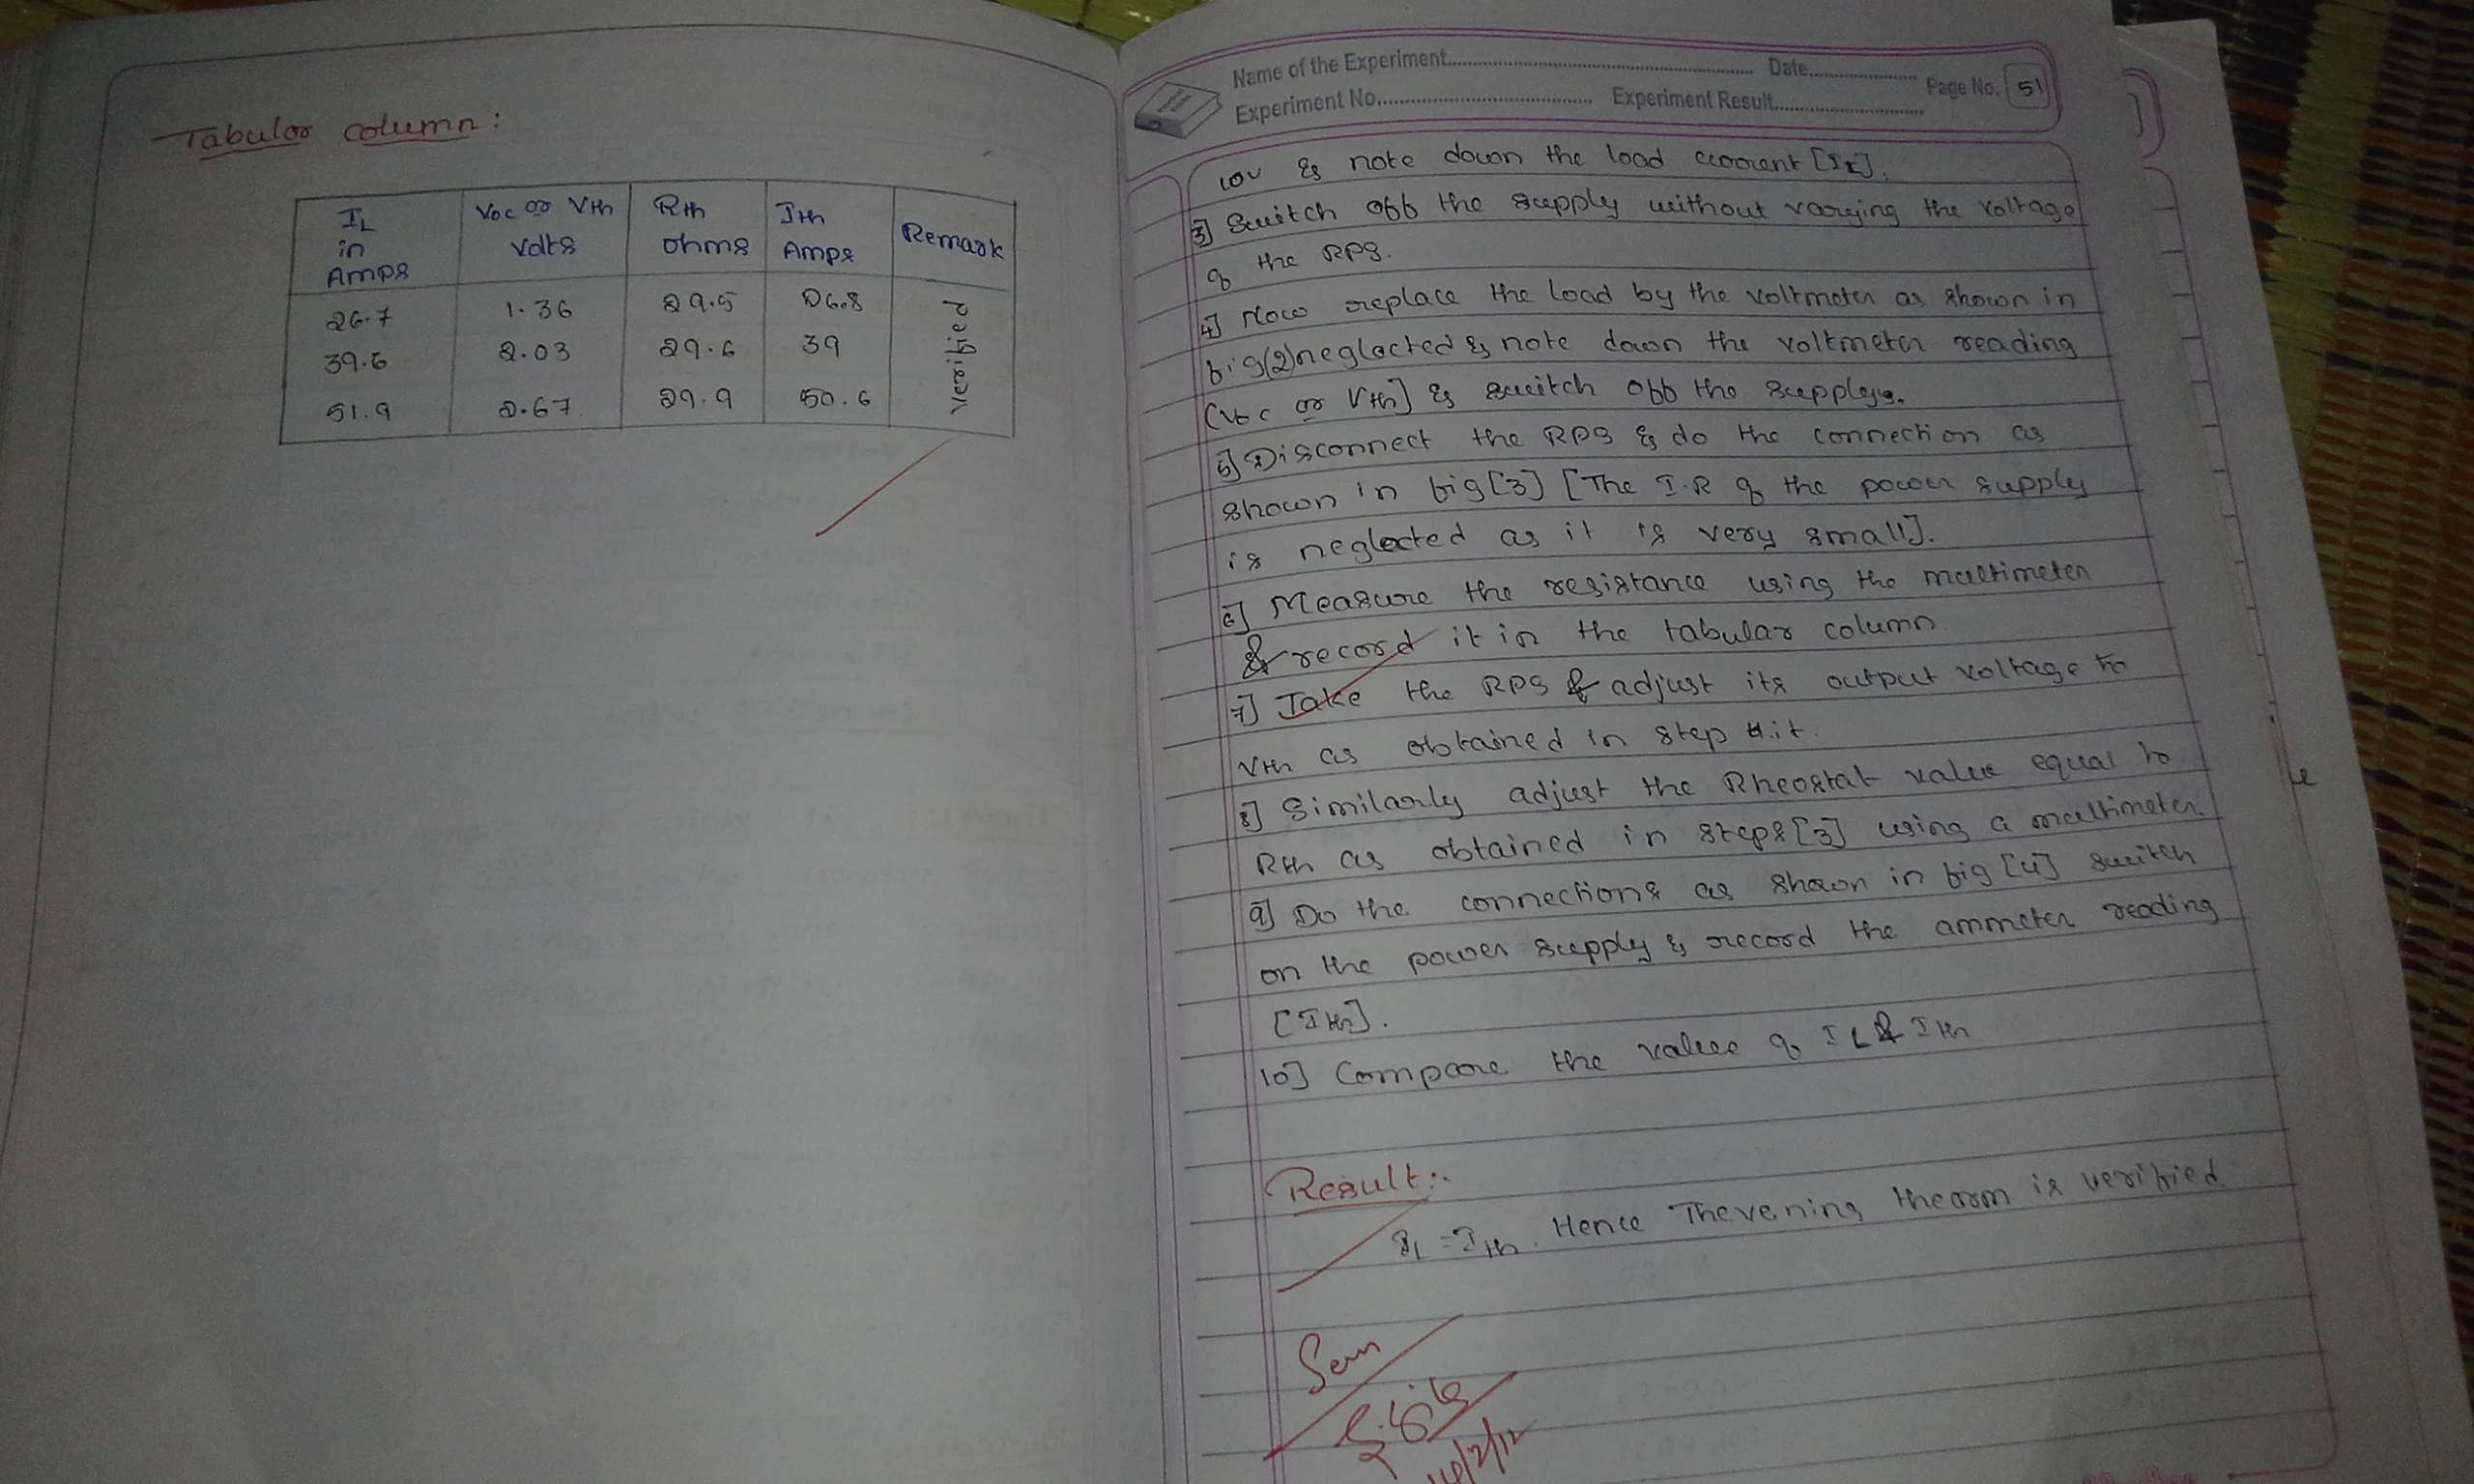 Tabular column:
IL in Amps | Voc or Vth Volts | Rth ohms | Ith Amps | Remark
26.7 | 1.36 | 29.5 | 26.8 | Verified
39.6 | 2.03 | 29.6 | 39
51.9 | 2.67 | 29.9 | 50.6
Name of the Experiment Date Page No. 51
Experiment No. Experiment Result
10v & note down the load current [IL].
3] Switch off the supply without varying the voltage
of the RPS.
4] Now replace the load by the voltmeter as shown in
fig(2)neglected & note down the voltmeter reading
(Voc or Vth] & switch off the supply.
5] Disconnect the RPS & do the connection as
shown in fig[3] [The I.R of the power supply
is neglected as it is very small].
6] Measure the resistance using the multimeter
& record it in the tabular column.
7] Take the RPS & adjust its output voltage to
Vth as obtained in step 4.it.
8] Similarly adjust the Rheostat value equal to
Rth as obtained in steps[3] using a multimeter.
9] Do the connections as shown in fig [4] switch
on the power supply & record the ammeter reading
[Ith].
10] Compare the value of IL & Ith
Result:
IL = Ith. Hence Thevening theorm is verified